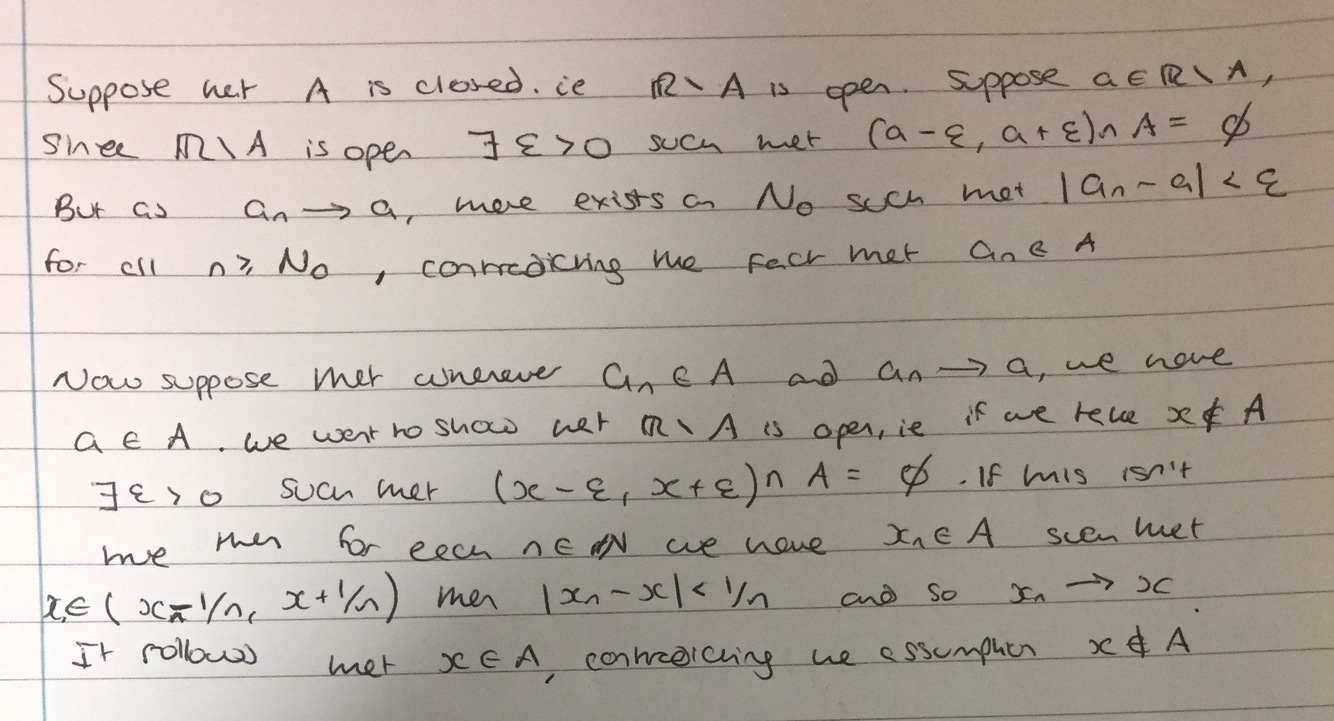 Suppose that A is closed. ie ℝ\A is open. Suppose a ∈ ℝ\A,
Since ℝ\A is open ∃ ε > 0 such that (a - ε, a + ε) ∩ A = ∅
But as aₙ → a, there exists an N₀ such that |aₙ - a| < ε
for all n ≥ N₀, contradicting the fact that aₙ ∈ A
Now suppose that whenever aₙ ∈ A and aₙ → a, we have
a ∈ A. we want to show that ℝ\A is open, ie if we take x ∉ A
∃ ε > 0 such that (x - ε, x + ε) ∩ A = ∅. If this isn't
true then for each n ∈ ℕ we have xₙ ∈ A such that
x ∈ (x - 1/n, x + 1/n) then |xₙ - x| < 1/n and so xₙ → x.
It follows that x ∈ A, contradicting the assumption x ∉ A